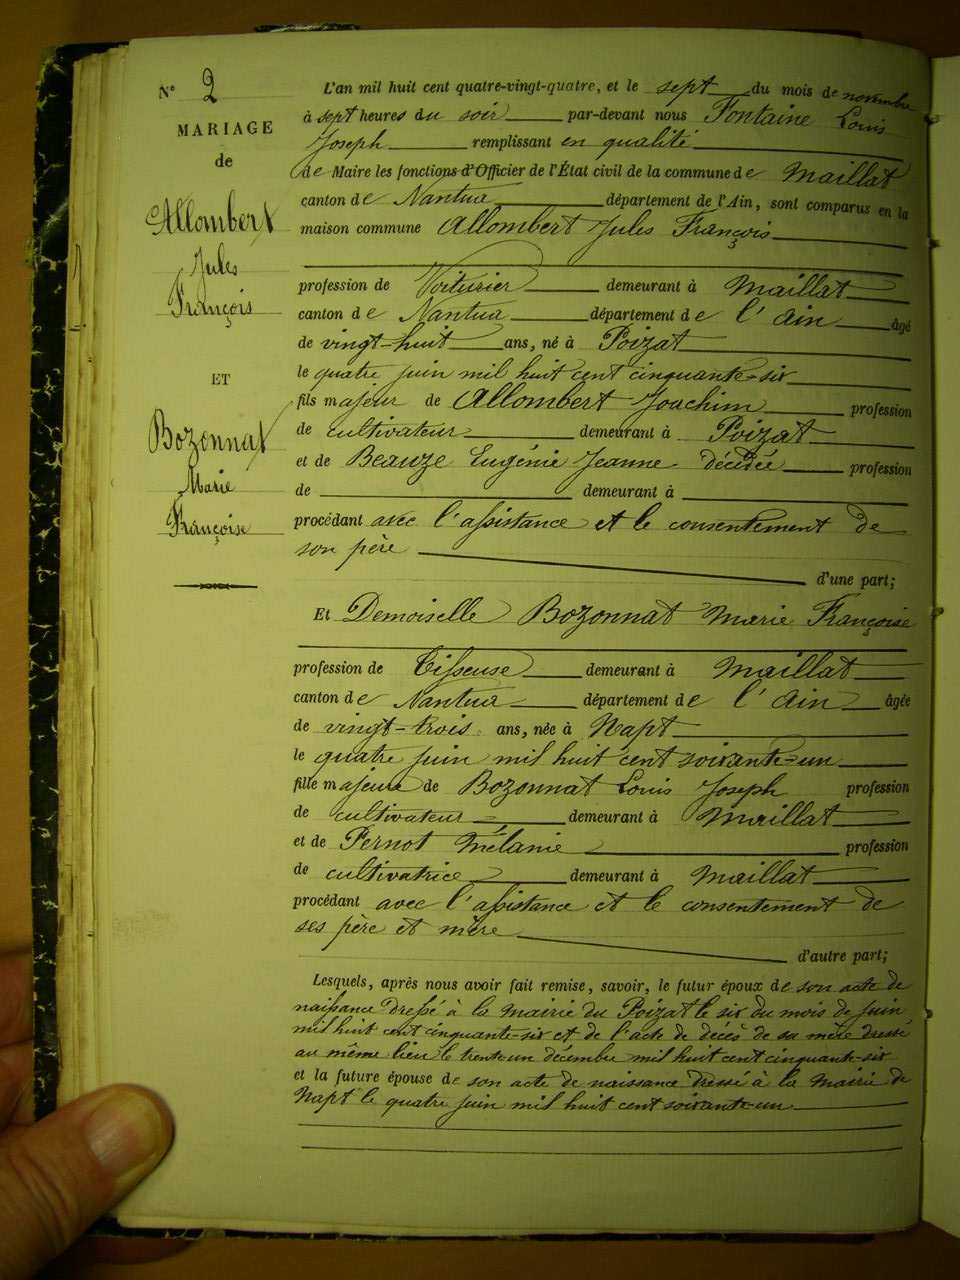 N° 2
MARIAGE
de
Allombert
Jules
François
ET
Bozonnat
Marie
Françoise
L'an mil huit cent quatre-vingt-quatre, et le sept du mois de novembre
à sept heures du soir par-devant nous Fontaine Louis
Joseph remplissant en qualité
de Maire les fonctions d'Officier de l'État civil de la commune de Maillat
canton de Nantua département de l'Ain, sont comparus en la
maison commune Allombert Jules François
profession de Voiturier demeurant à Maillat
canton de Nantua département de l'Ain âgé
de vingt-huit ans, né à Poizat
le quatre juin mil huit cent cinquante-six
fils majeur de Allombert Joachim profession
de cultivateur demeurant à Poizat
et de Beauze Eugénie Jeanne décédée profession
de demeurant à
procédant avec l'assistance et le consentement de
son père d'une part;
Et Demoiselle Bozonnat Marie Françoise
profession de Tisseuse demeurant à Maillat
canton de Nantua département de l'Ain âgée
de vingt-trois ans, née à Napt
le quatre juin mil huit cent soixante-un
fille majeure de Bozonnat Louis Joseph profession
de cultivateur demeurant à Maillat
et de Pernot Mélanie profession
de cultivatrice demeurant à Maillat
procédant avec l'assistance et le consentement de
ses père et mère d'autre part;
Lesquels, après nous avoir fait remise, savoir, le futur époux de son acte de
naissance dressé à la Mairie du Poizat le six du mois de juin
mil huit cent cinquante-six et de l'acte de décès de sa mère dressé
au même lieu le trente un décembre mil huit cent cinquante-six
et la future épouse de son acte de naissance dressé à la Mairie de
Napt le quatre juin mil huit cent soixante-un